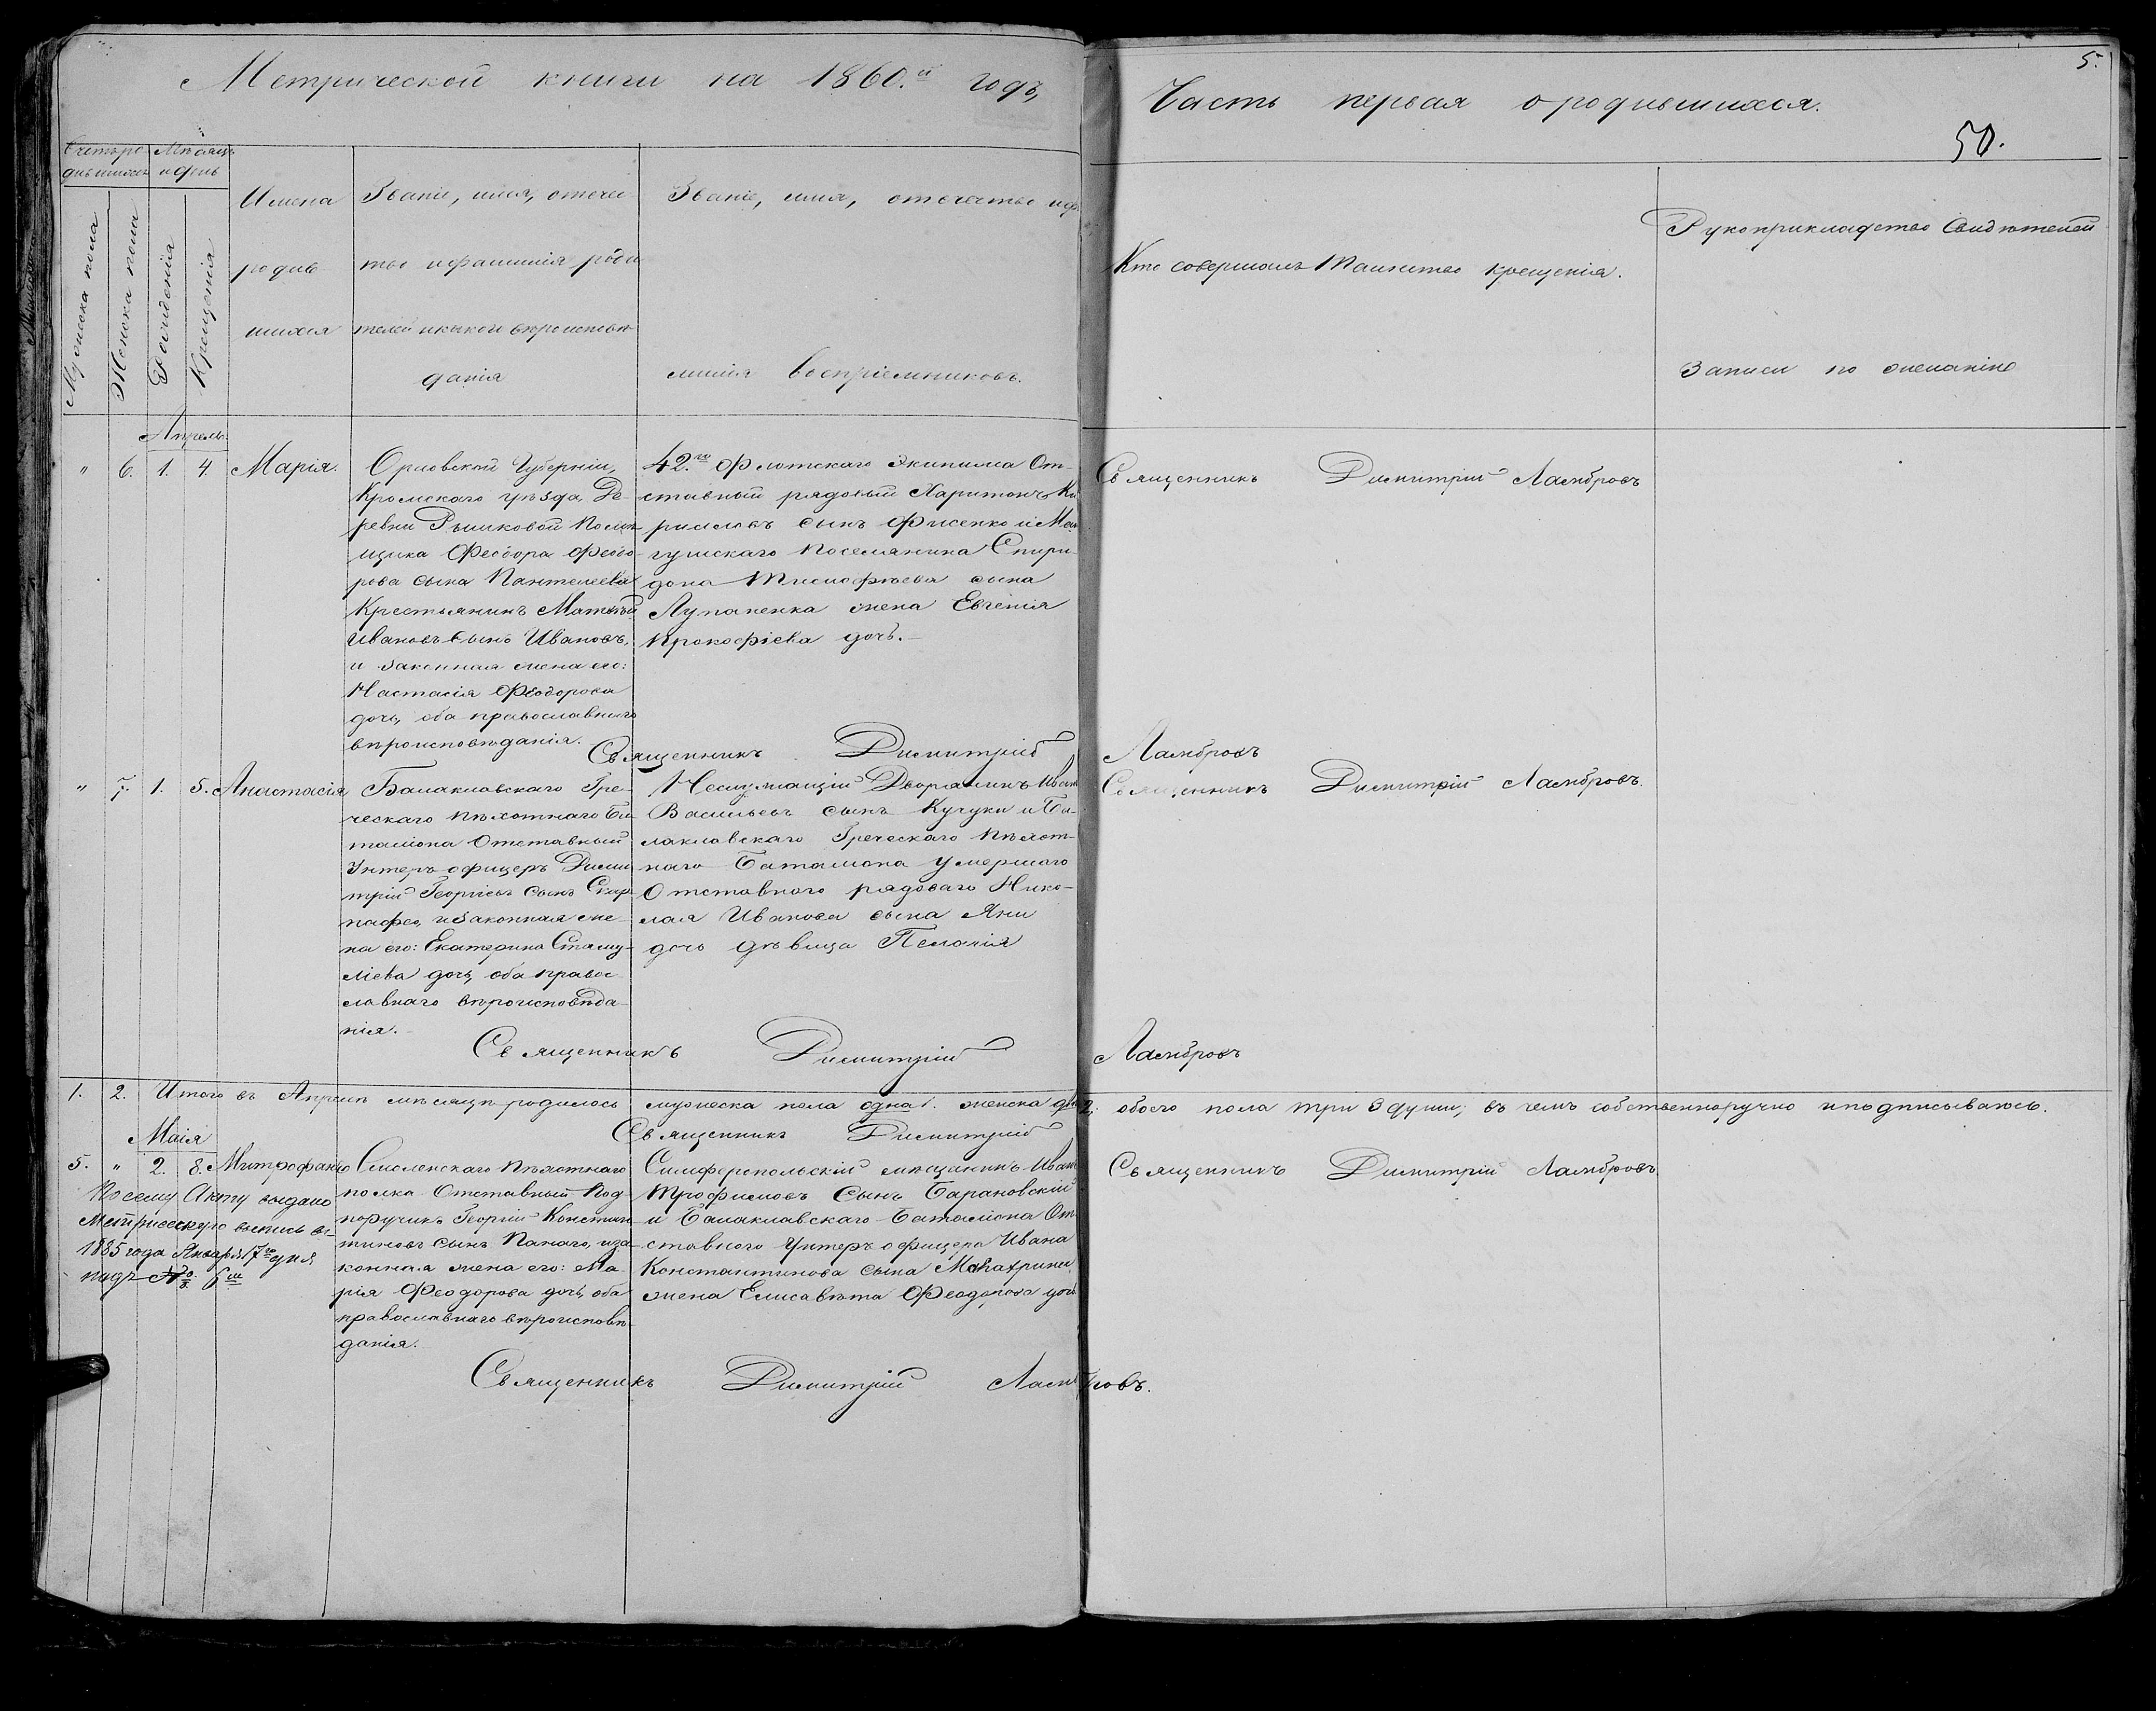 Метрической книги на 1860.й годъ,
Часть первая о родившихся.
5.
50.
Счетъ ро-
дившихся
Мѣсяцъ
и день
Мужеска пола
Женска пола
Рожденія
Крещенія
Имена
родив
шихся
Званіе, имя, отече
тво и фамилія роди
телей и какого вѣроисповѣ
данія
Званіе, имя, отечество и фа
милія Воспріемниковъ.
Кто совершалъ таинство крещенія.
Рукоприкладство свидѣтелей
Записи по желанію
Апрель.
" 6. 1. 4. Марія.
Орловской Губерніи,
Кромскаго уѣзда, Де-
ревни Рышковой Помѣ
щика Феодора Феодо-
рова сына Пантелеева
Крестьянинъ Матвѣй
Ивановъ сынъ Ивановъ,
и законная жена его:
Настасія Феодорова
дочь, оба православнаго
вѣроисповѣданія.
42.го Флотскаго Экипажа От-
ставный рядовый Харитонъ Ки
рилловъ сынъ Фисенко и Мен
гушскаго поселянина Спири-
дона Тимофѣева сына
Лупаненка жена Евгенія
Прокофіева дочь.
Священникъ Димитрій Ламбровъ
Священникъ Димитрій Ламбровъ
" 7. 1. 5. Анастасія
Балаклавскаго Гре-
ческаго пѣхотнаго Ба
таліона Отставный
Унтеръ офицеръ Дими
трій Георгіевъ сынъ
и законная же-
на его: Екатерина Стаму-
ліева дочь, оба правос-
лавнаго вѣроисповѣда-
нія.
Неслужащій Дворянинъ Иванъ
Васильевъ сынъ Кучуки и Ба-
лаклавскаго Греческаго Пѣхот-
наго Баталіона умершаго
Отставного рядоваго Нико-
лая Иванова сына Яни
дочь дѣвица Пелагія
Священникъ Димитрій Ламбровъ.
Священникъ Димитрій Ламбровъ
1. 2. Итого въ Апрелѣ мѣсяцѣ родилось мужеска пола одна 1. женска двѣ 2. обоего пола три 3 души; въ чемъ собственноручно и подписываюсь.
Священникъ Димитрій
Маія
5. " 2. 8. Митрофанъ
По сему Акту выдано
Метрическую выпись въ
1885 года Января 17го дня
подъ № 6й
Смоленскаго пѣхотнаго
полка Отставный Под-
поручикъ Георгій Констан
тиновъ сынъ Панаго, и за
конная жена его: Ма-
рія Феодорова дочь, оба
православнаго вѣроисповѣ-
данія.
Симферопольскій мѣщанинъ Иванъ
Трофимовъ сынъ Барановскій
и Балаклавскаго Баталіона От
ставного Унтеръ офицера Ивана
Константинова сына
жена Елисавѣта Феодорова дочь
Священникъ Димитрій Ламбровъ
Священникъ Димитрій Ламбровъ.